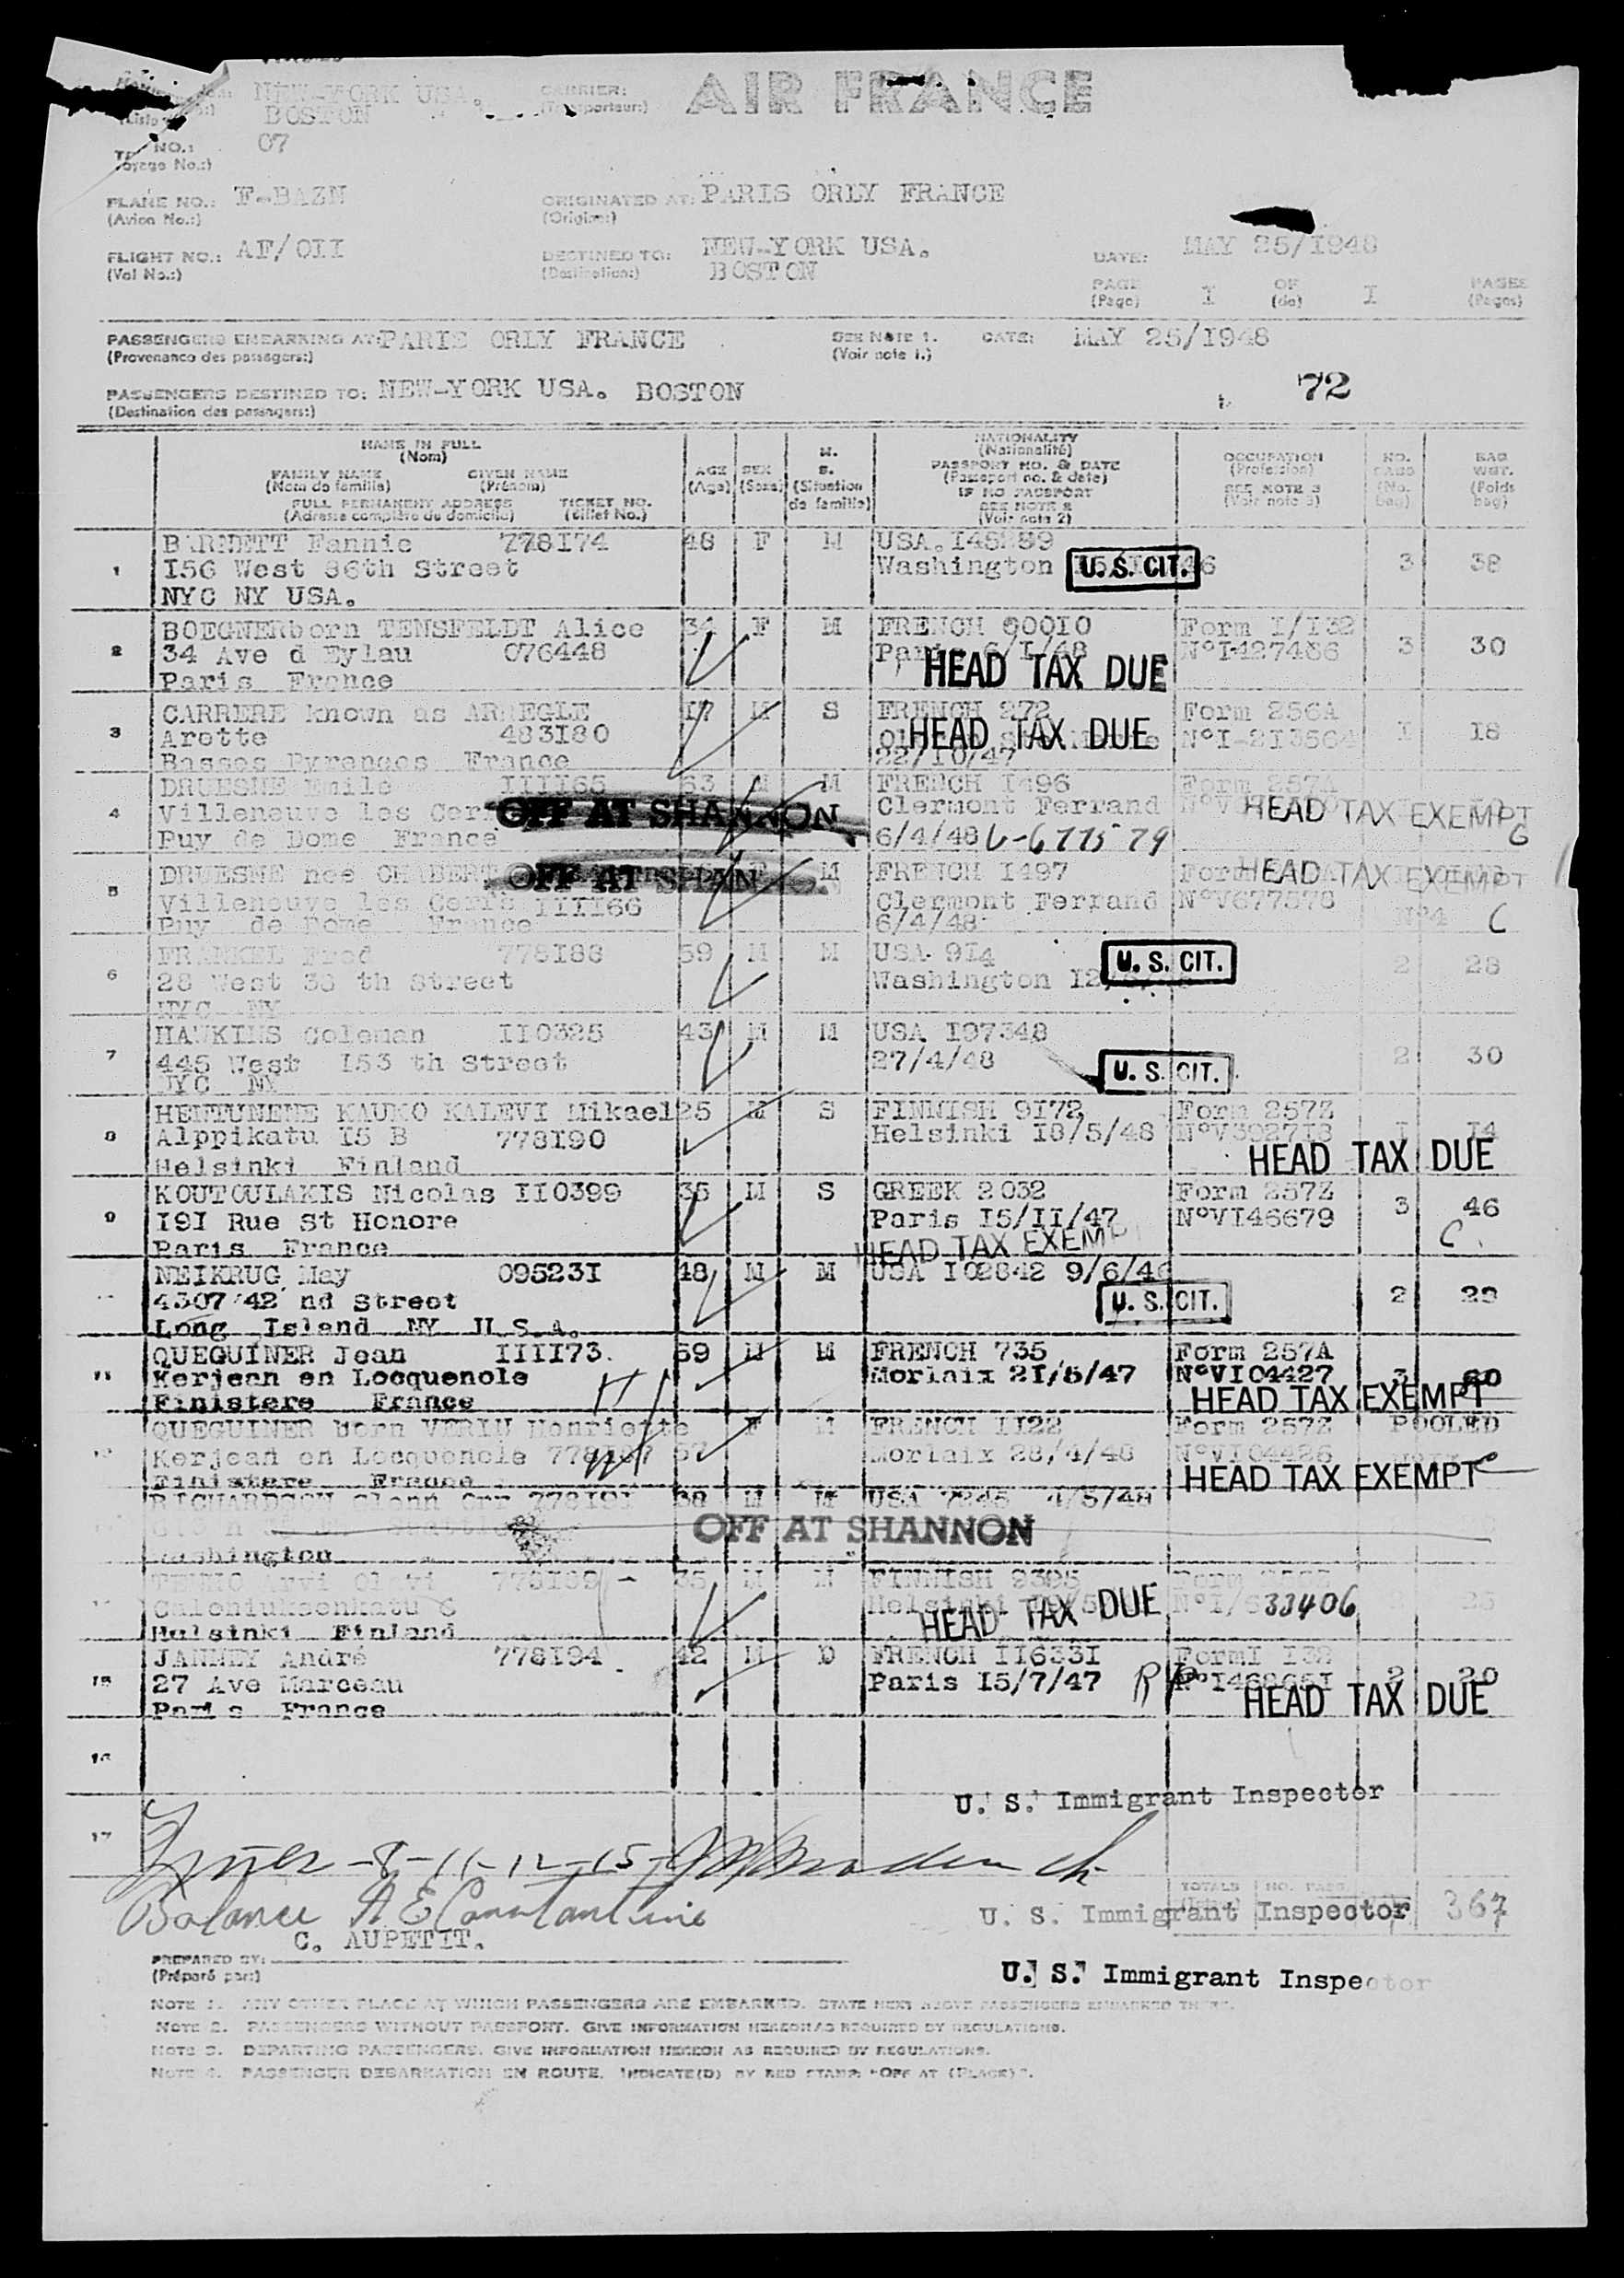 NEW-YORK USA.
BOSTON
CARRIER:
AIR FRANCE
NO.: 07
PLANE NO.: F-BAZN
(Avion No.:)
ORIGINATED AT: PARIS ORLY FRANCE
(Origine:)
FLIGHT NO.: AF/OII
(Vol No.:)
DESTINED TO: NEW-YORK USA.
(Destination:) BOSTON
DATE: MAY 25/I948
PAGE I OF I PAGES
(Page) (de) (Pages)
PASSENGERS EMBARKING AT: PARIS ORLY FRANCE SEE NOTE 1. DATE: MAY 25/I948
(Provenance des passagers:) (Voir note 1.)
PASSENGERS DESTINED TO: NEW-YORK USA. BOSTON 72
(Destination des passagers:)
NAME IN FULL
(Nom)
FAMILY NAME GIVEN NAME
(Nom de famille) (Prénom)
FULL PERMANENT ADDRESS TICKET NO.
(Adresse complète du domicile) (Billet No.)
AGE
(Age)
SEX
(Sexe)
M.
S.
(Situation
de famille)
NATIONALITY
(Nationalité)
PASSPORT NO. & DATE
(Passeport no. & date)
IF NO PASSPORT
SEE NOTE 2
(Voir note 2)
OCCUPATION
(Profession)
SEE NOTE 3
(Voir note 3)
NO.
BAGS
(No.
bag)
BAG
WGT.
(Poids
bag)
1 BARNETT Fannie 778I74 48 F M USA. 3 38
I56 West 86th Street Washington U. S. CIT.
NYC NY USA.
2 BOEGNERborn TENSFELDT Alice 34 F M FRENCH 60010 Form I/I32 3 30
34 Ave d Eylau 076448 Paris 6/I/48 N°I427486
Paris France HEAD TAX DUE
3 CARRERE known as I7 M S FRENCH 272 Form 256A I I8
Arette 483I80 HEAD TAX DUE N°I-2I3564
Basses Pyrenees France 22/I0/47
4 DRUESNE Emile IIII65 63 M M FRENCH I496 Form 257A
Villeneuve les Cerfs OFF AT SHANNON Clermont Ferrand HEAD TAX EXEMPT
Puy de Dome France 6/4/48 V-677579
5 DRUESNE nee CHABERT OFF AT SHANNON M FRENCH I497 HEAD TAX EXEMPT
Villeneuve les Cerfs IIII66 Clermont Ferrand N°V677578
Puy de Dome France 6/4/48 N°4 C
6 FRANKEL Fred 778I88 59 M M USA 9I4 U. S. CIT. 2 28
28 West 38 th Street Washington
NYC NY
7 HAWKINS Coleman II0325 43 M M USA I97348 2 30
445 West I53 th Street 27/4/48 U. S. CIT.
NYC NY
8 HENTUNENE KAUKO KALEVI Mikael 25 M S FINNISH 9I72 Form 257Z I I4
Alppikatu I5 B 778I90 Helsinki I8/5/48 N°V392718
Helsinki Finland HEAD TAX DUE
9 KOUTOULAKIS Nicolas II0399 35 M S GREEK 2032 Form 257Z 3 46
I9I Rue St Honore Paris I5/II/47 N°VI46679
Paris France HEAD TAX EXEMPT C
NEIKRUG May 09523I 48 M M USA I02842 9/6/4
4307 42 nd Street U. S. CIT. 2 29
Long Island NY U.S.A.
11 QUEGUINER Jean IIII73. 59 M M FRENCH 735 Form 257A 3 60
Kerjean en Locquenole Morlaix 2I/5/47 N°VI04427
Finistere France HEAD TAX EXEMPT
12 QUEGUINER born VERIU Henriette 57 F M FRENCH II22 Form 257Z POOLED
Kerjean en Locquenole Morlaix 28/4/48 N°VI04426
Finistere France HEAD TAX EXEMPT
RICHARDSON Glenn Orr 778I9I 38 M M USA 7245 4/5/48
OFF AT SHANNON
Washington
Olavi 778I89 35 M M FINNISH 9395
HEAD TAX DUE 33406 25
Helsinki Finland
15 JANNEY André 778I94 42 M D FRENCH II633I FormI I32 2 20
27 Ave Marceau Paris I5/7/47
Paris France HEAD TAX DUE
16
U. S. Immigrant Inspector
17
-8-11-12-15-
TOTALS NO. PASS.
Balance A E Constantine U. S. Immigrant Inspector 367
C. AUPETIT.
PREPARED BY:
(Préparé par:)
U. S. Immigrant Inspector
NOTE 1. ANY OTHER PLACE AT WHICH PASSENGERS ARE EMBARKED. STATE NEXT ABOVE PASSENGERS EMBARKED THERE.
NOTE 2. PASSENGERS WITHOUT PASSPORT. GIVE INFORMATION HEREON AS REQUIRED BY REGULATIONS.
NOTE 3. DEPARTING PASSENGERS. GIVE INFORMATION HEREON AS REQUIRED BY REGULATIONS.
NOTE 4. PASSENGER DEBARKATION EN ROUTE. INDICATE(D) BY RED STAMP "OFF AT (PLACE)".